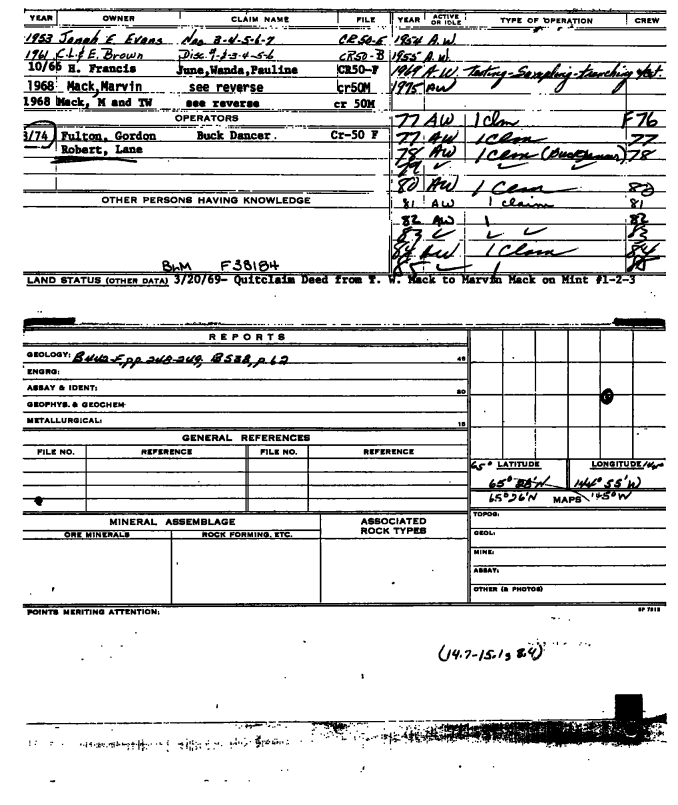 YEAR OWNER CLAIM NAME FILE YEAR ACTIVE OR IDLE TYPE OF OPERATION CREW
1953 Jonah E Evans Nos 3-4-5-6-7 CR50-E 1954 A.W.
1961 E Brown Disc. CR50-B 1955 A.W.
10/66 H. Francis June,Wanda,Pauline CR50-F 1969 A.W. Testing-Sampling-trenching
1968 Mack,Marvin see reverse cr50M 1975 AW
1968 Mack, M and TW see reverse cr 50M
OPERATORS 77 AW 1 Clm F76
3/74 Fulton, Gordon Buck Dancer. Cr-50 F 77 AW 1 Clm 77
Robert, Lane 78 AW 1 Clm (Buckdancer) 78
79 ✓ ✓ ✓
80 AW 1 Clm
OTHER PERSONS HAVING KNOWLEDGE 81 AW 1 claim 81
82 AW 1 82
83 ✓ ✓ ✓ 83
84 AW 1 Clam 84
BLM F38184 85 ✓ 1 85
LAND STATUS (OTHER DATA) 3/20/69- Quitclaim Deed from T. W. Mack to Marvin Mack on Mint #1-2-3
REPORTS
GEOLOGY: B442-F, pp 248-249, B538, p 62 45
ENGRG:
ASSAY & IDENT: 30
GEOPHYS. & GEOCHEM
METALLURGICAL: 15
GENERAL REFERENCES
FILE NO. REFERENCE FILE NO. REFERENCE
65° LATITUDE LONGITUDE
144° 55'W
65°26'N MAPS 145°W
MINERAL ASSEMBLAGE ASSOCIATED ROCK TYPES
ORE MINERALS ROCK FORMING, ETC.
TOPOG:
GEOL:
MINE:
ASSAY:
OTHER (& PHOTOS)
POINTS MERITING ATTENTION:
(14.7-15.1, 8.4)